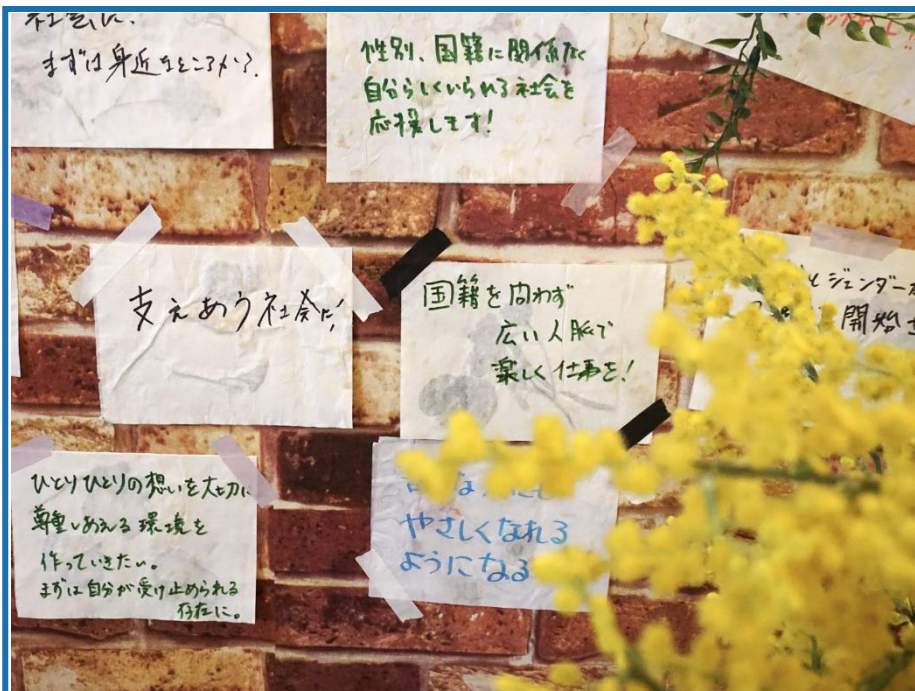 社会に!
まずは身近なところから。
性別、国籍に関係なく
自分らしくいられる社会を
応援します!
支えあう社会に!
国籍を問わず
広い人脈で
楽しく仕事を!
とジェンダー
開始
ひとりひとりの想いを大切に
尊重しあえる環境を
作っていきたい。
まずは自分が受け止められる
存在に。
やさしくなれる
ようになる